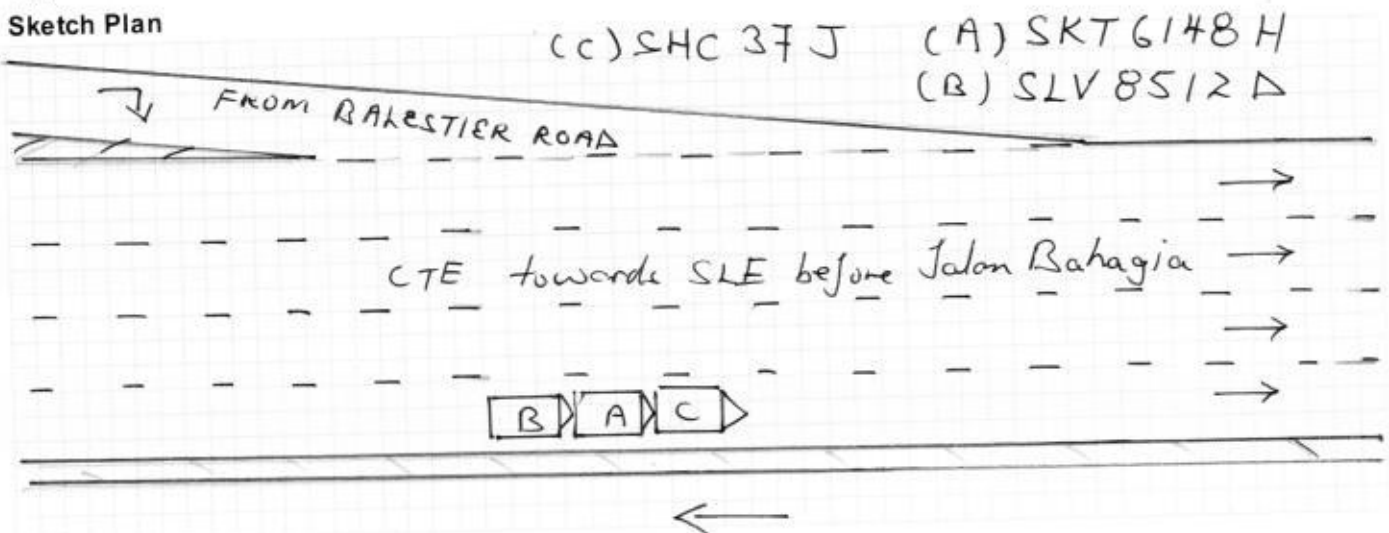 Sketch Plan
(C) SHC 37 J (A) SKT 6148 H
(B) SLV 8512 D
FROM BALESTIER ROAD
CTE towards SLE before Jalan Bahagia
B A C